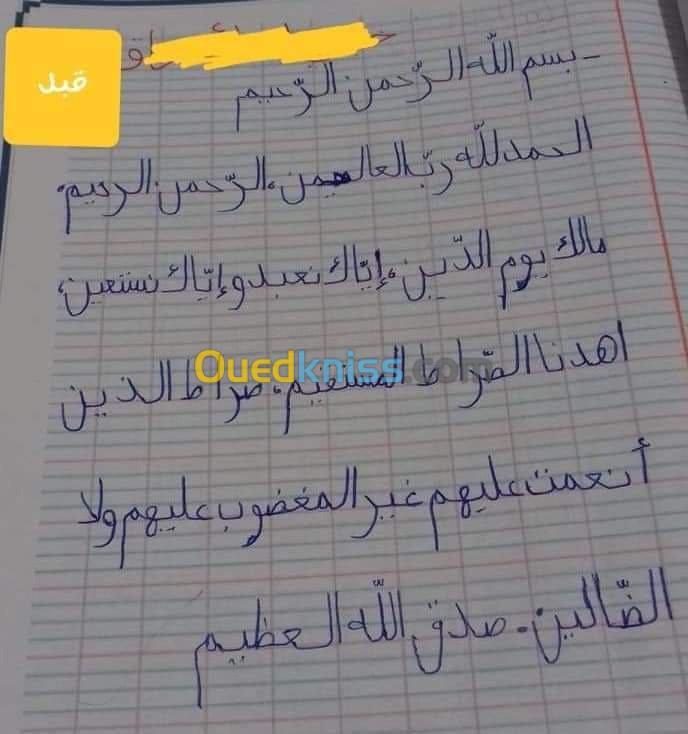 قبل
- بسم اللّه الرّحمن الرّحيم
الحمد للّه ربّ العالمين، الرّحمن الرحيم،
مالك يوم الدّين، إيّاك نعبد وإيّاك نستعين،
اهدنا الصّراط المستقيم، صراط الذين
Ouedkniss.com
أنعمت عليهم غير المغضوب عليهم ولا
الضّالين. صدق اللّه العظيم